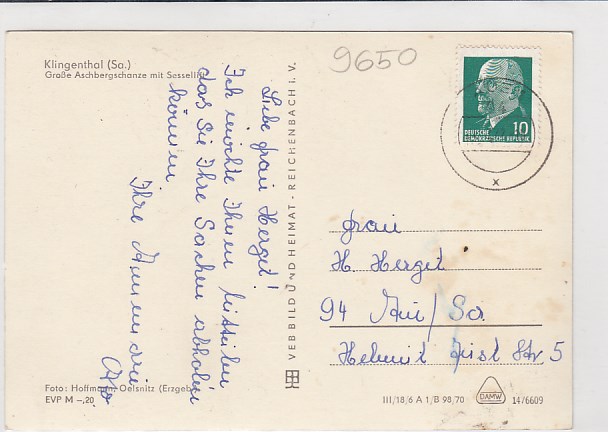 Klingenthal (Sa.)
Große Aschbergschanze mit Sessellift
9650
DEUTSCHE
DEMOKRATISCHE REPUBLIK
10
Liebe Frau Herget!
Ich möchte Ihnen mitteilen
das Sie Ihre Sachen abholen
können.
Ihre Annemarie
VEB BILD UND HEIMAT · REICHENBACH I. V.
Frau
H Herget
94 Aue/Sa.
Helmut Just Str 5
Foto: Hoffmann, Oelsnitz (Erzgeb.)
EVP M –,20
III/18/6 A 1/B 98/70
DAMW
14/6609
x